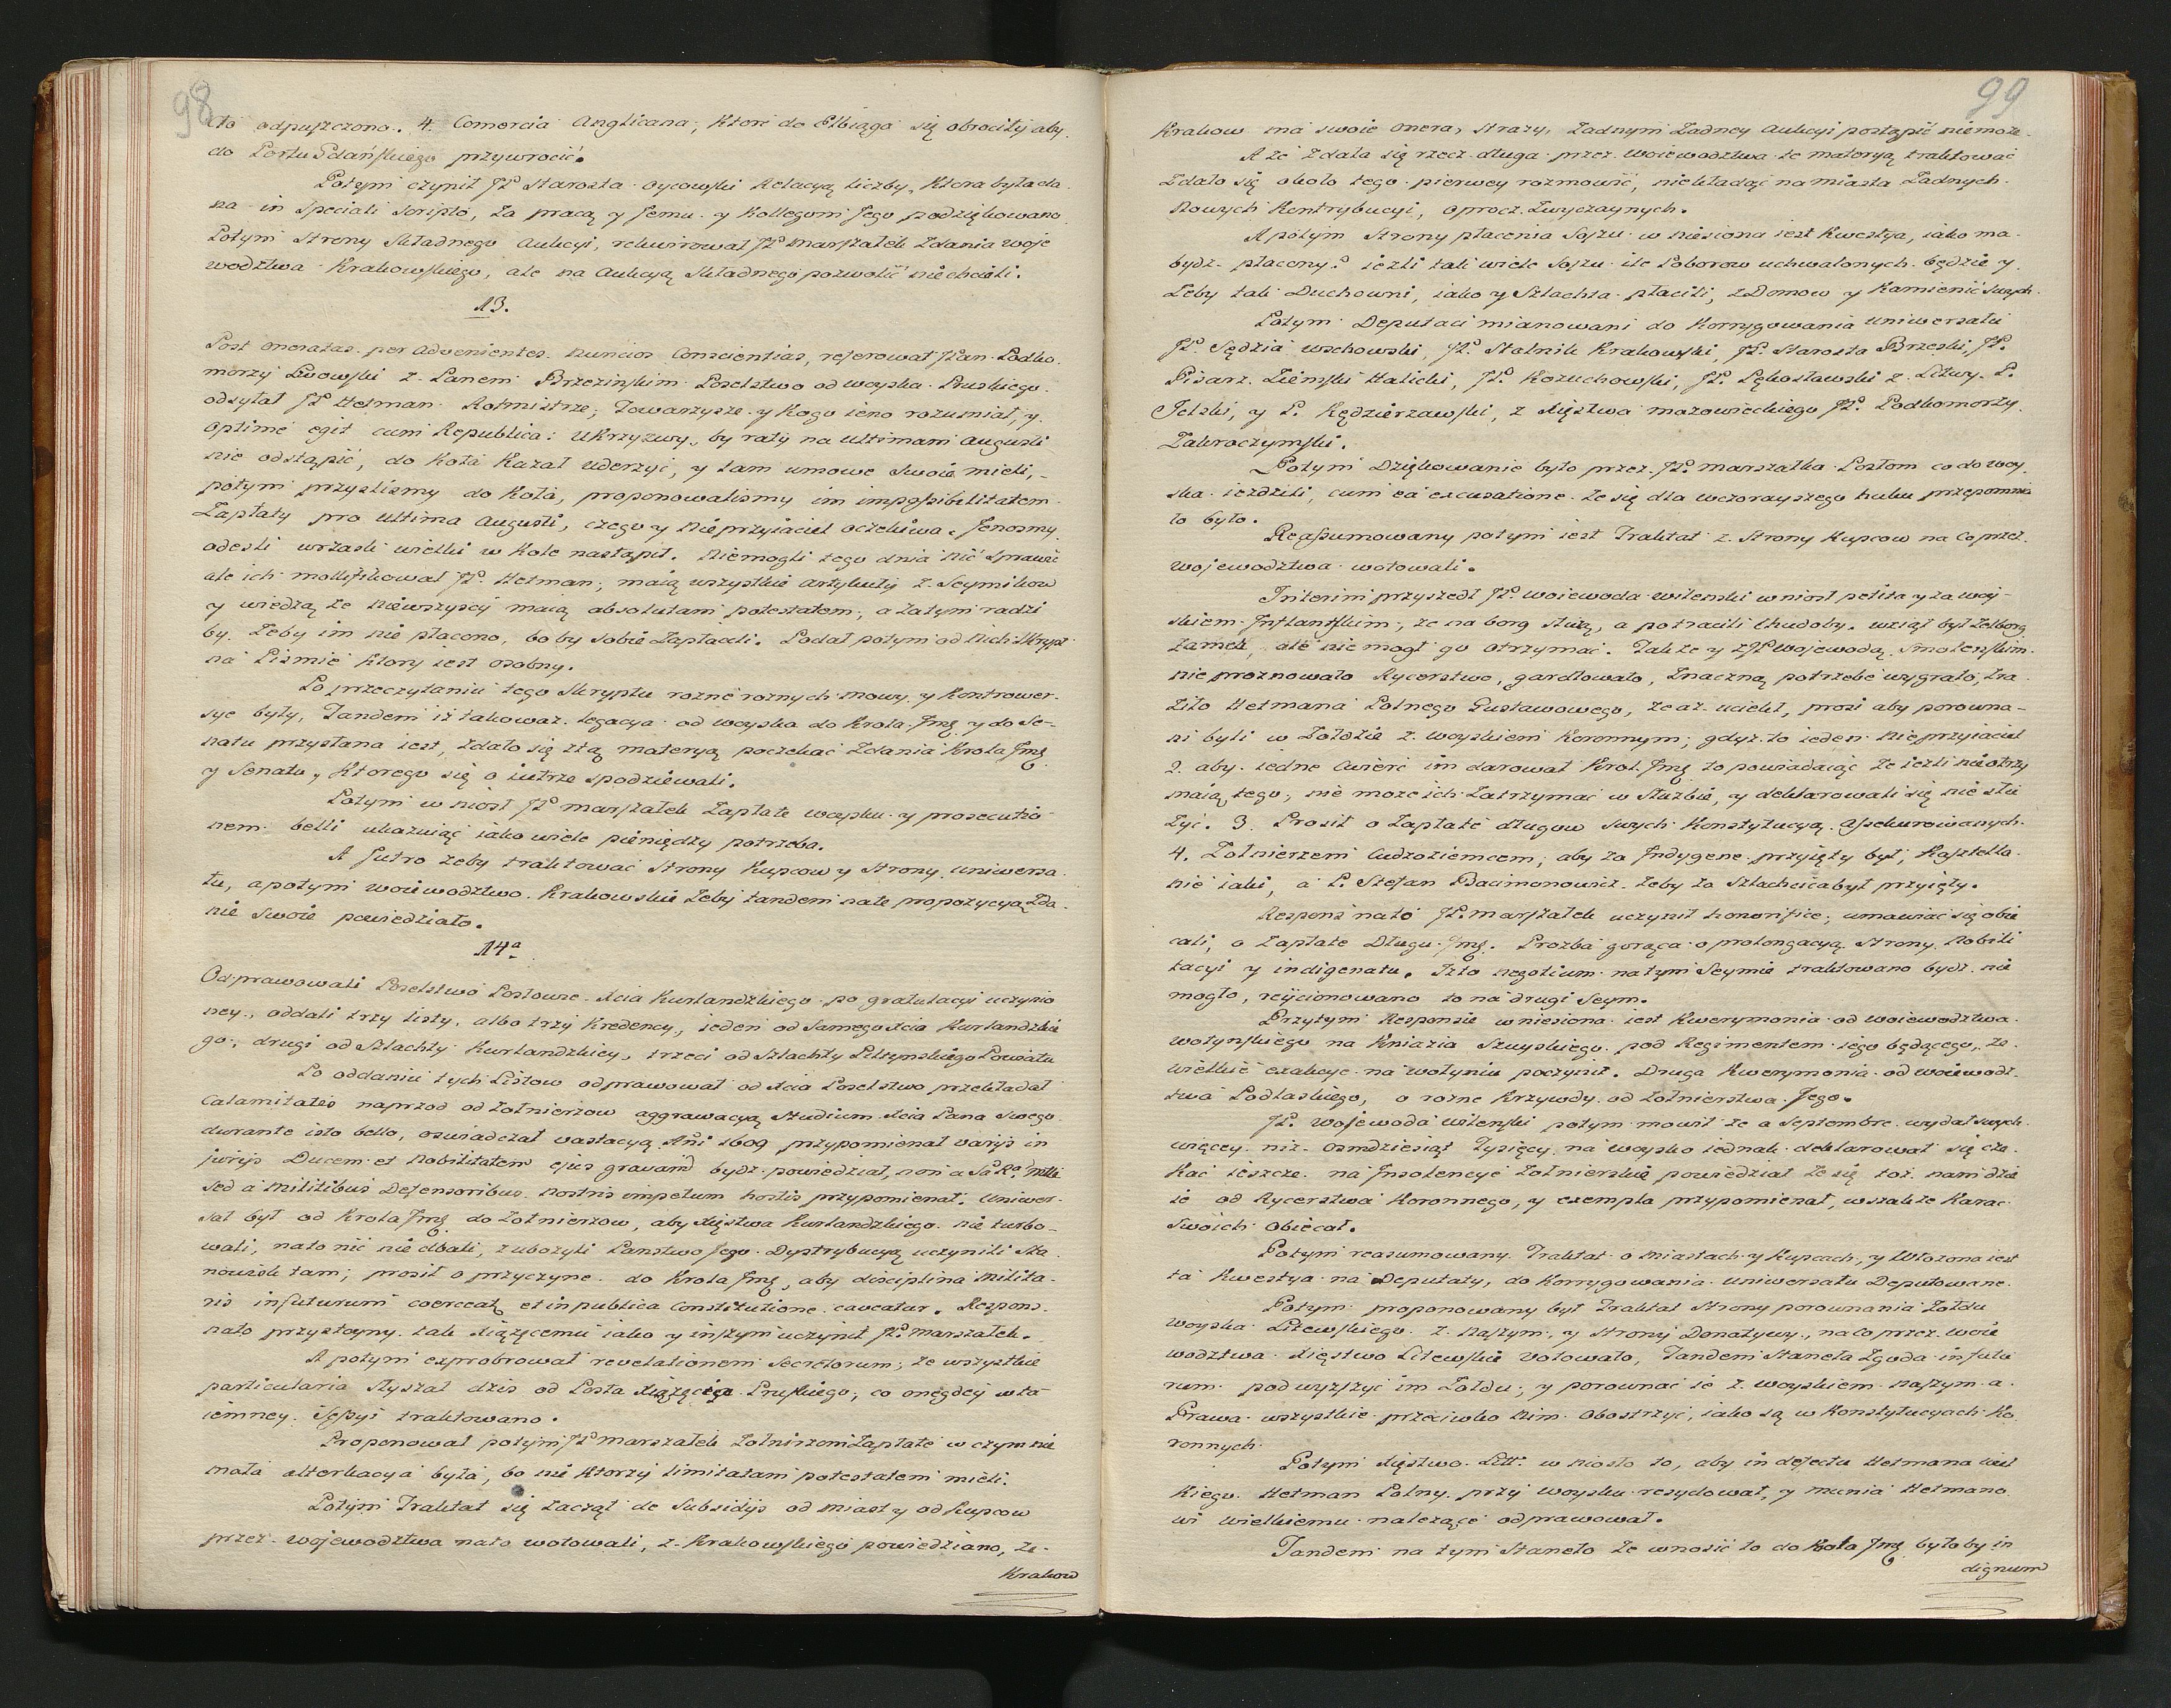 98
to odpuszczono. 4. Comercia Anglicana, ktore do Elbiąga się obrociły aby
do Portu Gdańskiego przywrocić.
Potym czynił JP. Starosta Oycowski Relacyą liczby, ktora była da
na in speciali scripto, za pracą y Jemu y Kollegom Jego podziękowano
Potym strony składnego Aukcyi, rekwirował JP Marszałek zdania woje
wodztwa Krakowskiego, ale na Aukcyą składnego pozwolić niechcieli.
13.
Post oneratas per advenientes Nuncios Conscientias, referował JPan Podko
morzy Lwowski z Panem Brzezinskim Poselstwo od woyska Pruskiego.
odsyłał JP Hetman Rotmistrze, Towarzysze y kogo ieno rozumiał, y
optime egit cum Republica: Ukrzyzwy, by raty na ultimam Augusti
nie odstąpić, do Koła kazał uderzyć, y tam umowe swoie mieli,
potym przyslismy do Koła, proponowalismy im impossibilitatem
Zapłaty pro ultima Augusti, czego y Nieprzyiaciel oczekiwa. Jenosmy
odeszli wrzask wielki w Kole nastąpił. Niemogli tego dnia nic sprawić
ale ich mollifikował JP. Hetman; maią wszystkie artykuły z Seymikow
y wiedzą ze niewszyscy maią absolutam potestatem, a zatym radzi
by. zeby im nie płacono, bo by sobie zapłacili. Podał potym od nich skrypt
na Pismie ktory iest osobny.
Po przeczytaniu tego skryptu rozne roznych mowy y kontrower
sye były, Tandem iz takowaz legacya od woyska do Krola Jmę y do Se-
natu przysłana iest, zdało się z tą materyą poczekać zdania Krola Jmę
y Senatu, ktorego się o iutrze spodziewali.
Potym w niosł JP Marszałek zapłate woysku y prosecutio
nem belli ukazuiąc iako wiele pieniędzy potrzeba.
A Jutro zeby traktować strony Kupcow y strony uniwersa
łu, a potym woiewodztwo Krakowskie zeby tandem na te propozycyą zda
nie swoie powiedziało.
14ª
Odprawowali Poselstwo Posłowie Xcia Kurlandzkiego po gratulacyi uczynio
ney, oddali trzy listy, albo trzy kredency, ieden od samego Xcia Kurlandzkie
go, drugi od Szlachty Kurlandzkiey, trzeci od Szlachty Piltynskiego Powiatu
Po oddaniu tych Listow odprawował od Xcia Poselstwo przekładał
Calamitates naprzod od Zołnierzow aggrawacyą Studium Xcia Pana swego
durante isto bello, oswiadczał vastacyą Ani 1609 przypomienał varys in
jurijs Ducem et Nobilitatem ejus gravari bydz powiedział, non a Sa Ra Mtte
sed a militibus Defensoribus nostris impetum hostis przypomienał. Uniwer-
sał był od Krola Jmę do Zołnierzow, aby Xięstwa Kurlandzkiego nie turbo-
wali, nato nic nie dbali, zubozyli Panstwo Jego Dystrybucyą uczynili Sta
nowisk tam; prosił o przyczyne do Krola Jmę, aby disciplina milita-
ris in futurum coerceatę et in publica Constitutione caveatur. Respons
nato przystoyny tak Xiązęcemu iako y inszym uczynił JP. Marszałek.
A potym exprobrował revelationem Secretorum; ze wszystkie
particularia słyszał dzis od Posła Xiązęcia Pruskiego; co onegdey w ta
iemney Sessyi traktowano.
Proponował potym JP Marszałek Zołnierzom Zapłate w czym nie
mała alterkacya była, bo nie ktorzy limitatam potestatem mieli.
Potym Traktat się zaczął de Subsidijs od Miast y od Kupcow
przez wojewodztwa nato wotowali, z Krakowskiego powiedziano, ze
Krakow
99
Krakow ma swoie onera, strazy, zadnym zadney Aukcyi postąpić niemoże
A ze zdała się rzecz długa przez woiewodztwa te materyą traktować
zdało się około tego pierwey rozmowić, niekładąc na miasta zadnych
nowych Kontrybucyi, oprocz zwyczaynych.
A potym strony płacenia Soszu w niesiona iest Kwestya, iako ma
bydz płacony? iezli tak wiele Soszu ile Poborow uchwalonych będzie y
zeby tak Duchowni, iako y Szlachta płacili, z Domow y Kamienic swych
Potym Deputaci mianowani do korrygowania Uniwersału
JP. Sędzia wschowski, JP. Stolnik Krakowski, JP. Starosta Brzeski, JP.
Pisarz Ziemski Halicki, JP. Kozuchowski, JP. Pękosławski z Litwy. P.
Jelski, y P. Kędzierzawski, z Xięstwa mazowieckiego JP. Podkomorzy
Zakroczymski.
Potym Dziękowanie było przez JP. Marszałka Posłom co do woy
ska iezdzili, cum ea excusatione ze się dla wczorayszego huku przepomnia
ło było.
Reassumowany potym iest Traktat z strony Kupcow na co przez
wojewodztwa wotowali.
Interim przyszedł JP. woiewoda wilenski wniosł petita y za woy-
skiem Inflantskim, ze na borg słuzą, a potracili chudoby. wziął był Zelborg
zamek, ale nie mogł go otrzymać. Takze y z JP wojewodą Smolenskim
nie proznowało Rycerstwo, gardłowało, znaczną potrzebe wygrało, zra
ziło Hetmana Polnego Gustawowego, ze az uciekł, prosi aby porowna-
ni byli w zołdzie z woyskiem Koronnym; gdyz to ieden nieprzyiaciel
2. aby iedne cwierc im darował Krol Jmę to powiadaiąc ze iezli nieotrzy
maią tego, nie moze ich zatrzymać w słuzbie, y deklarowali się nie słu
zyć. 3. Prosił o zapłate długow swych Konstytucyą assekurowanych
4. Zołnierzem cudzoziemcem, aby za Indygene przyięty był, Kasztella
nie iaki, a P. Stefan Pacimonowicz zeby za Szlachcica był przyięty.
Respons nato JP. Marszałek uczynił honorifice, umawiać się obie
cali, o zapłate Długu Jmę. Prozba gorąca o prolongacyą strony nobili
tacyi y indigenatu. Izto negotium na tym Seymie traktowano bydz nie
mogło, reijcionowano to na drugi Seym.
Przytym Responsie wniesiona iest Kwerymonia od woiewodztwa
wołynskiego na Kniazia Szuyskiego pod Regimentem iego będącego, ze
wielkie exakcye na wołyniu poczynił. Druga Kwerymonia od woiewodz-
twa Podlaskiego, o rozne krzywdy od Zołnierstwa Jego.
JP. wojewoda wilenski potym mowił ze a Septembre wydał swych
więcey niz osmdziesiąt Tysięcy na woysko iednak deklarował się cze
kać ieszcze na Insolencye zołnierskie powiedział ze się toz nam dzie
ie od Rycerstwa Koronnego, y exempla przypomienał, wszakze karac
swoich obiecał.
Potym reasumowany Traktat o Miastach y Kupcach, y włozona iest
ta Kwestya na Deputaty, do korrygowania uniwersału Deputowane.
Potym proponowany był Traktat strony porownania zołdu
woyska Litewskiego z naszym, y strony Donatywy, na co przez woie
wodztwa Xięstwo Litewskie votowało, Tandem staneła zgoda in futu
rum podwyzszyć im zołdu, y porownać ie z woyskiem naszym a
Prawa wszystkie przeciwko nim obostrzyć, iako są w Konstytucyach Ko
ronnych.
Potym Xięstwo Litt. w niosło to, aby in defectu Hetmana wiel
kiego Hetman Polny przy woysku rezydował, y munia Hetmano
wi wielkiemu nalezące odprawował.
Tandem na tym staneło ze wnosić to do Koła Jmę byłoby in
dignum